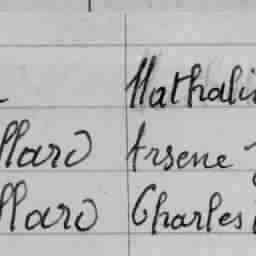 Nathali
llard Arsene
llard Charles